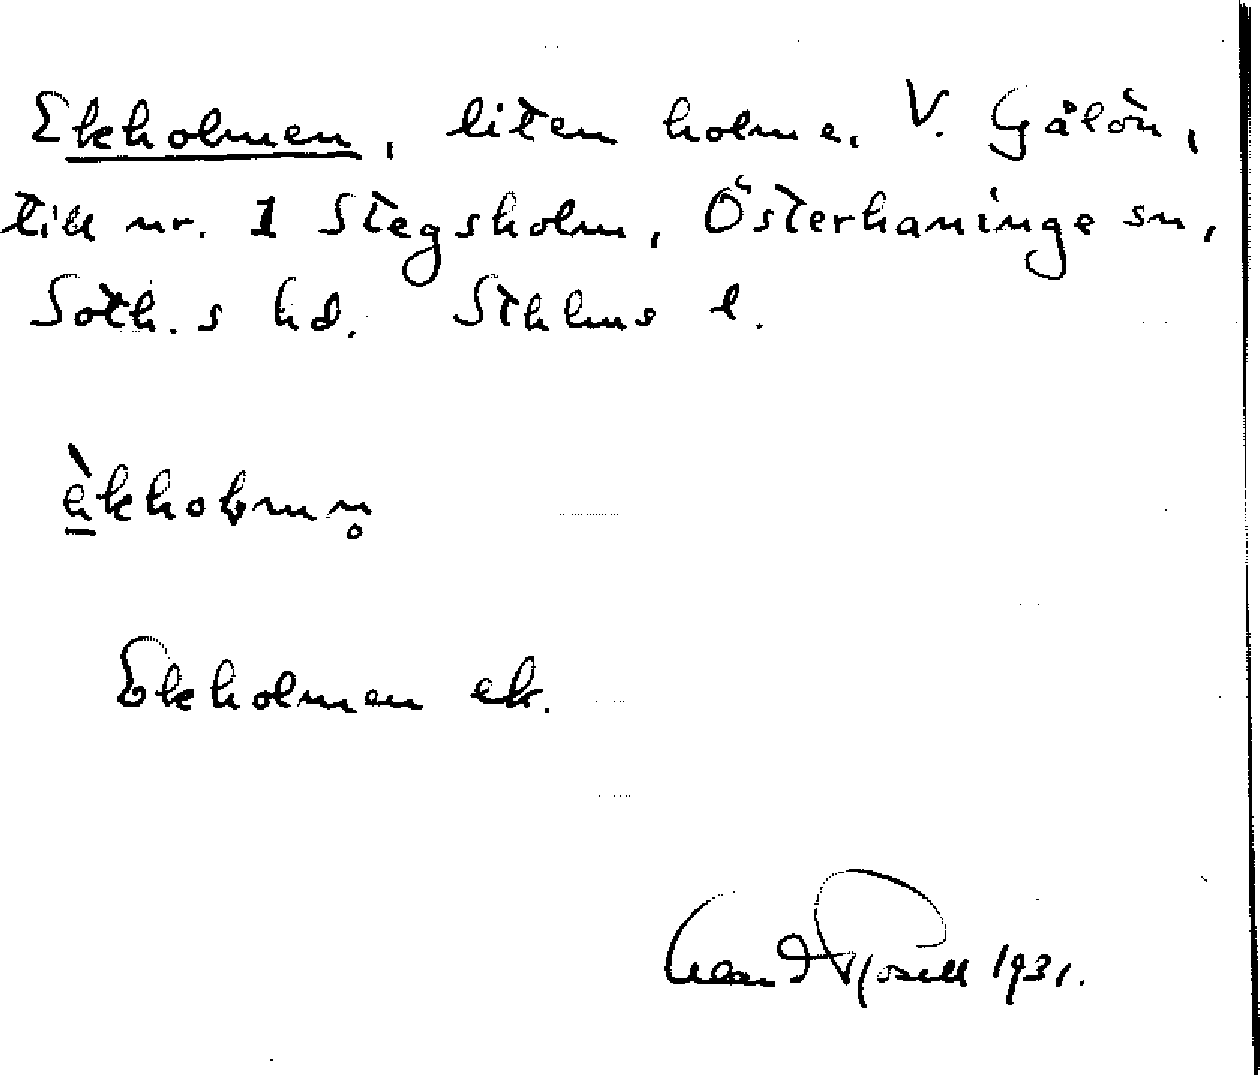 Ekholmen, liten holme. V. Gålön,
till nr. 1 Stegsholm, Österhaninge sn,
Soth.s hd. Sthlms l.
Ekholmen ek.
1931.